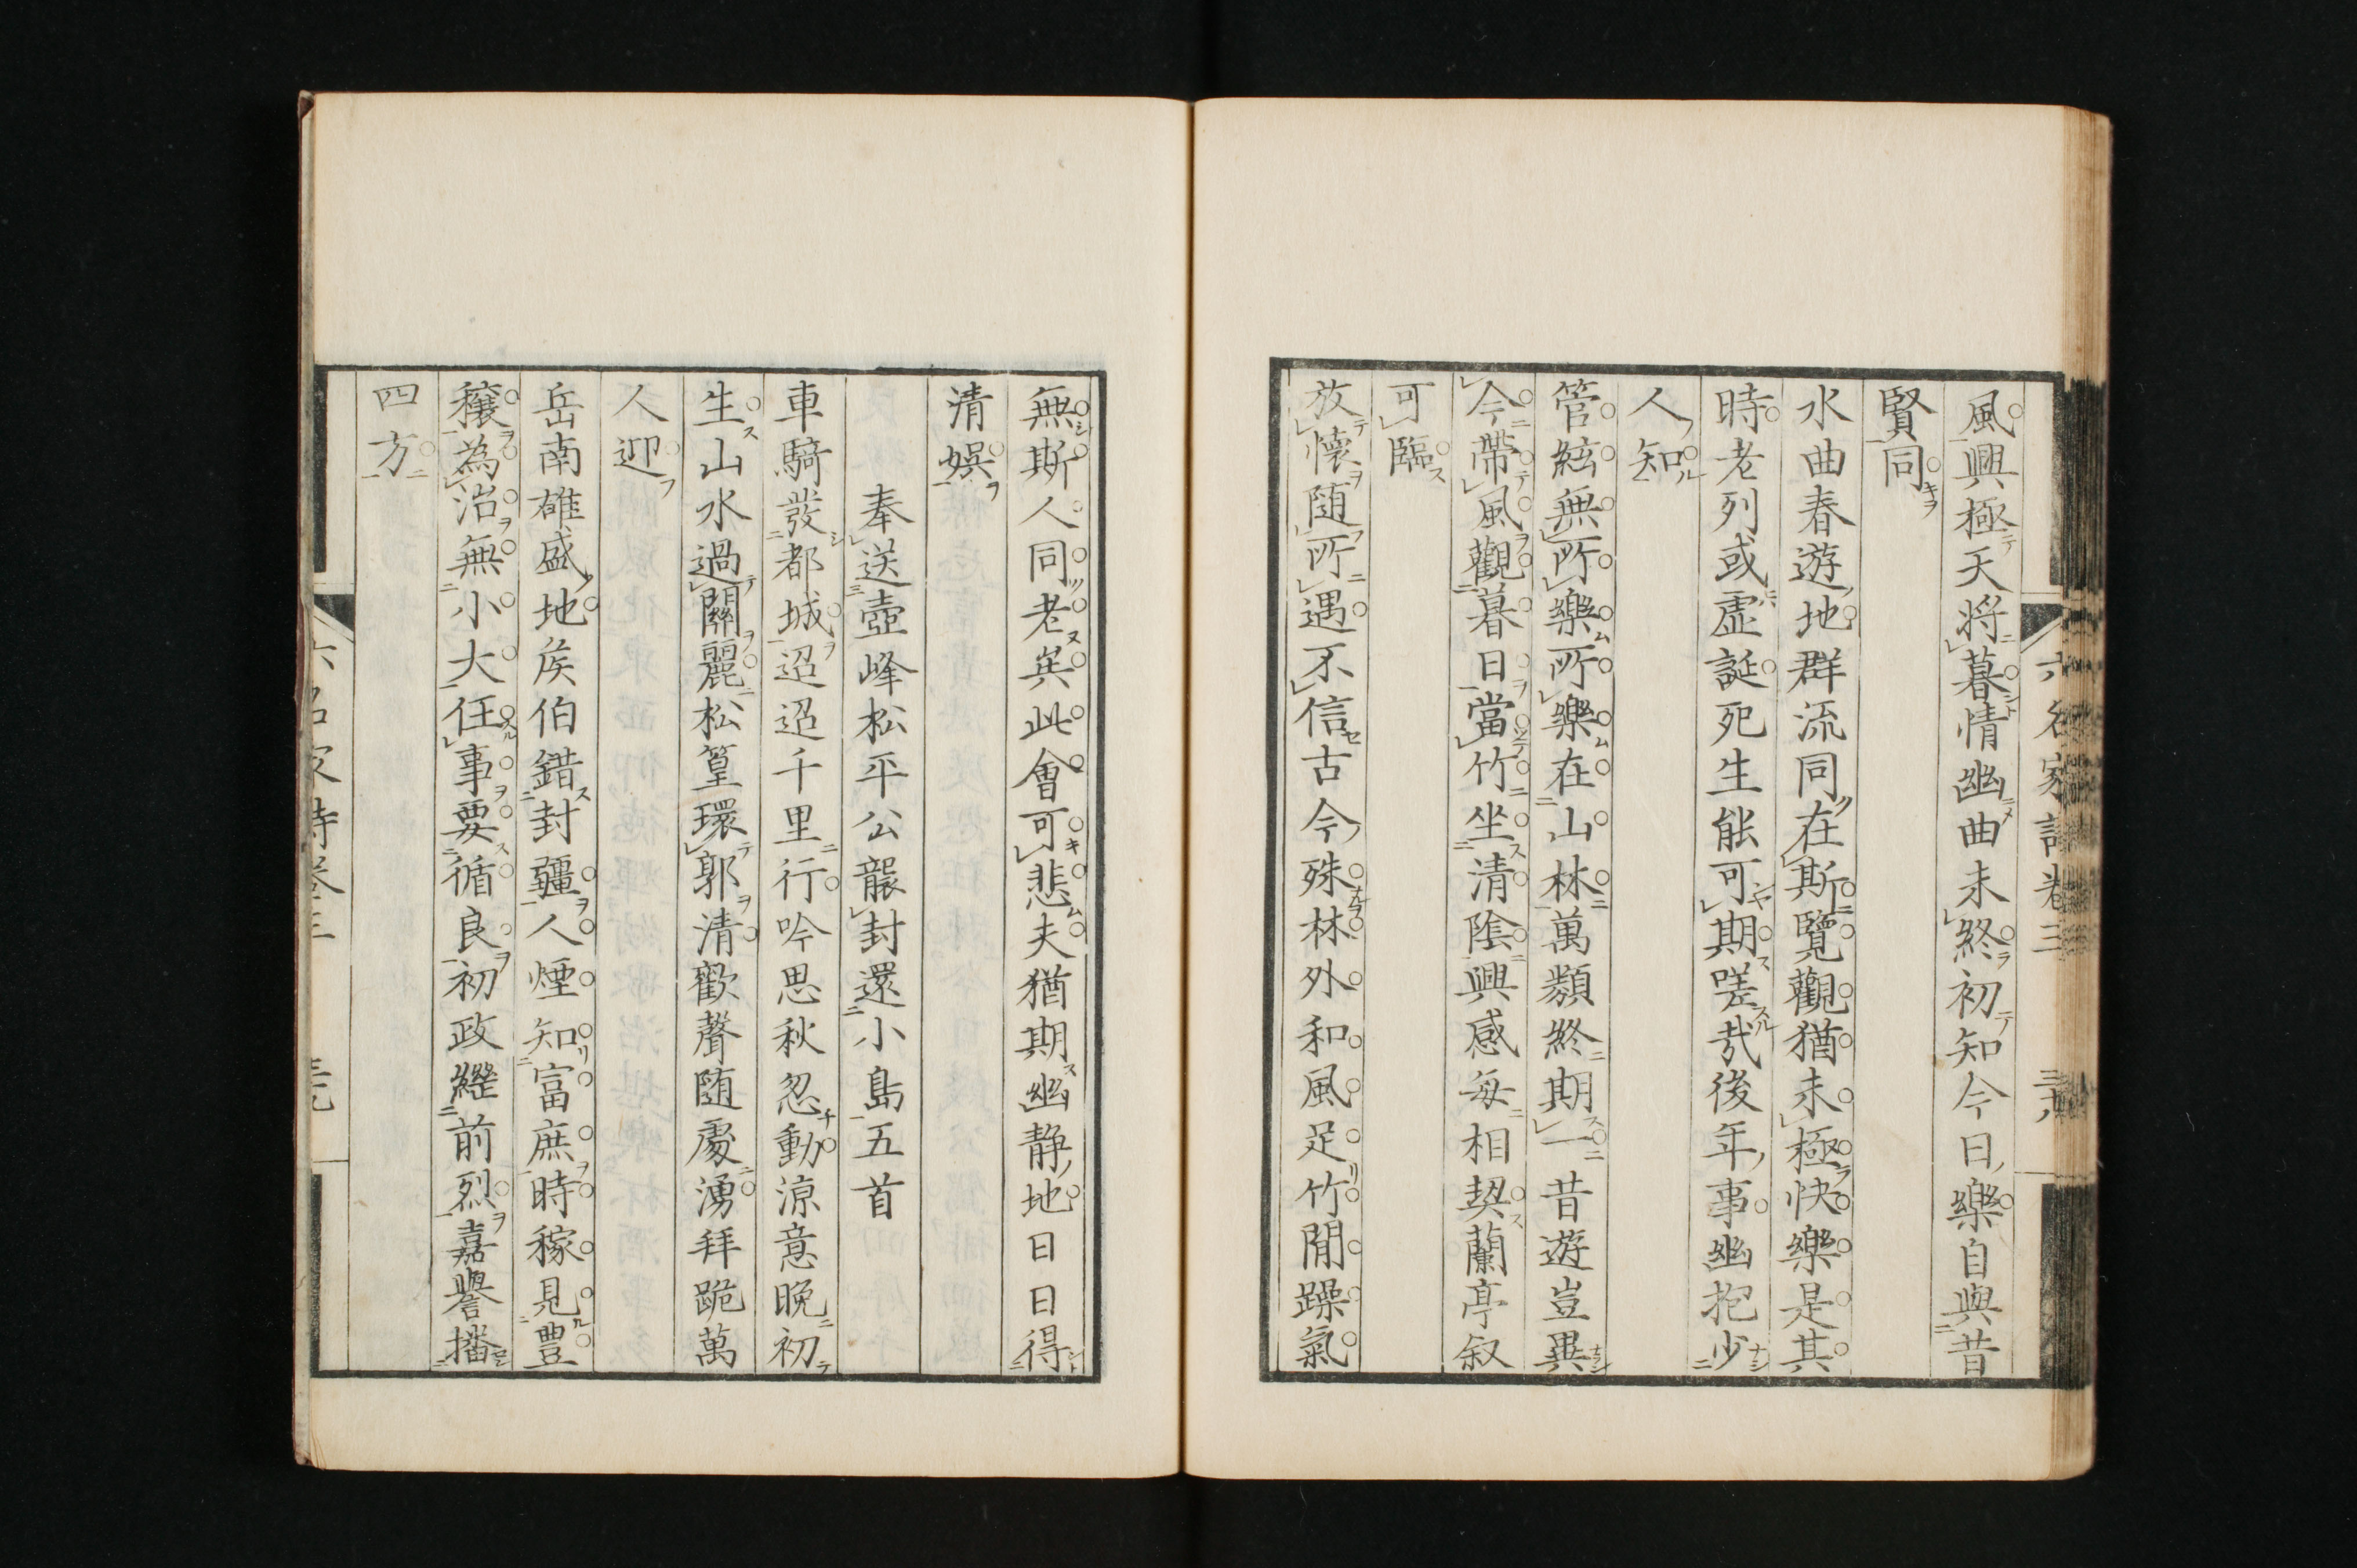 六名家詩卷三
風興極天將暮情幽曲未終初知今日樂自與昔
賢同
水曲春遊地群流同在斯覽觀猶未極快樂是其
時老列或虛誕死生能可期嗟哉後年事幽抱少
人知
管絃無所樂所樂在山林萬類終期一昔遊豈異
今帶風觀暮日當竹坐清陰興感每相契蘭亭叙
可臨
放懷随所遇不信古今殊林外和風足竹間躁氣
無斯人同老矣此會可悲夫猶期幽静地日日得
清娯
奉送壺峰松平公襲封還小島五首
車騎發都城迢迢千里行吟思秋忽動涼意晚初
生山水過關麗松篁環郭清歡聲随處湧拜跪萬
人迎
岳南雄盛地矦伯錯封疆人煙知富庶時稼見豊
穰為治無小大任事要循良初政繼前烈嘉譽播
四方